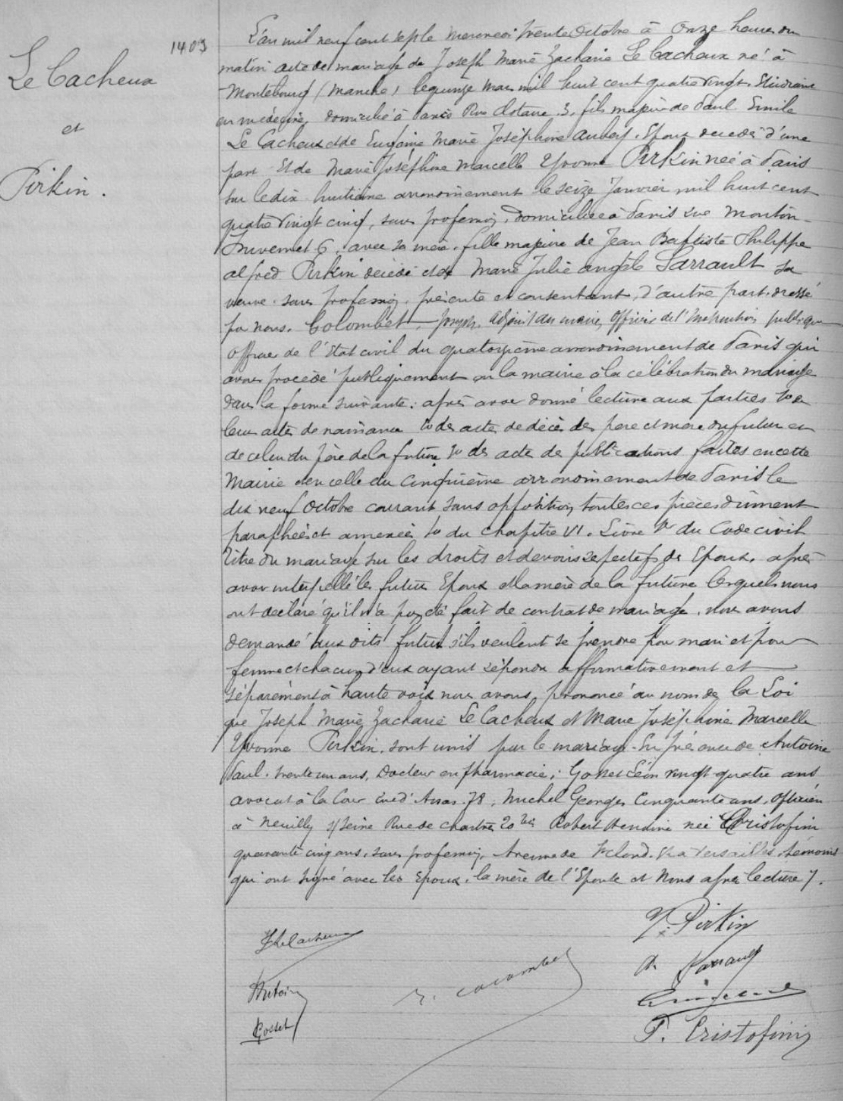 1403
Le Cacheux
et
Pirkin.
L'an mil neuf cent sept le mercredi trente Octobre à Onze heures du
matin acte de mariage de Joseph Marie Zacharie Le Cacheux né à
Montebourg (Manche) le quinze mars mil huit cent quatre vingt. Etudiant
en médecine, domicilié à Paris Rue 3, fils majeur de Paul Emile
Le Cacheux et de Eugénie Marie Joséphine Aubert, Epoux décédés d'une
part. Et de Marie Joséphine Marcelle Yvonne Pirkin née à Paris
sur le dix huitième arrondissement le seize Janvier mil huit cent
quatre vingt cinq, sans profession, domiciliée à Paris rue Mouton-
Duvernet 6, avec sa mère, fille majeure de Jean Baptiste Philippe
alfred Pirkin décédé et de Marie Julie angèle Sarrault sa
veuve, sans profession, présente et consentante, d'autre part. dressé
par nous. Colombet, Joseph, adjoint au maire, Officier de l'Instruction publique
officier de l'Etat civil du quatorzième arrondissement de Paris qui
avons procédé publiquement en la mairie à la célébration du mariage
dans la forme suivante: après avoir donné lecture aux parties 1o de
leurs actes de naissance 2o des actes de décès des père et mère du futur et
de celui du père de la future 3o des acte de publications faites en cette
Mairie et en celle du Cinquième arrondissement de Paris le
dix neuf Octobre courant sans opposition, toutes ces pièces dûment
paraphées et annexées 4o du chapitre VI. Livre 1er du Code civil
titre du mariage sur les droits et devoirs respectifs des Epoux, après
avoir interpellé les futurs Epoux et la mère de la future lesquels nous
ont déclaré qu'il n'a pas été fait de contrat de mariage. Nous avons
demandé aux dits futurs s'ils veulent se prendre pour mari et pour
femme et chacun d'eux ayant répondu affirmativement et
séparément à haute voix nous avons prononcé au nom de la Loi
que Joseph Marie Zacharie Le Cacheux et Marie Joséphine Marcelle
Yvonne Pirkin. sont unis par le mariage. En présence de Antoine
Paul. trente un ans, Docteur en pharmacie; Gosset Léon vingt quatre ans
avocat à la Cour rue d'Assas 78, Michel Georges Cinquante ans, Opticien
à Neuilly s/ Seine Rue de Chartres 20 bis Robert née Cristofini
quarante cinq ans, sans profession, avenue de St Cloud à Versailles témoins
qui ont signé avec les Epoux, la mère de l'Epouse et Nous après lecture /.
JLeCacheux
Y. Pirkin
A. Sarrault
Antoine
J. Colombet
Gosset
P. Cristofini